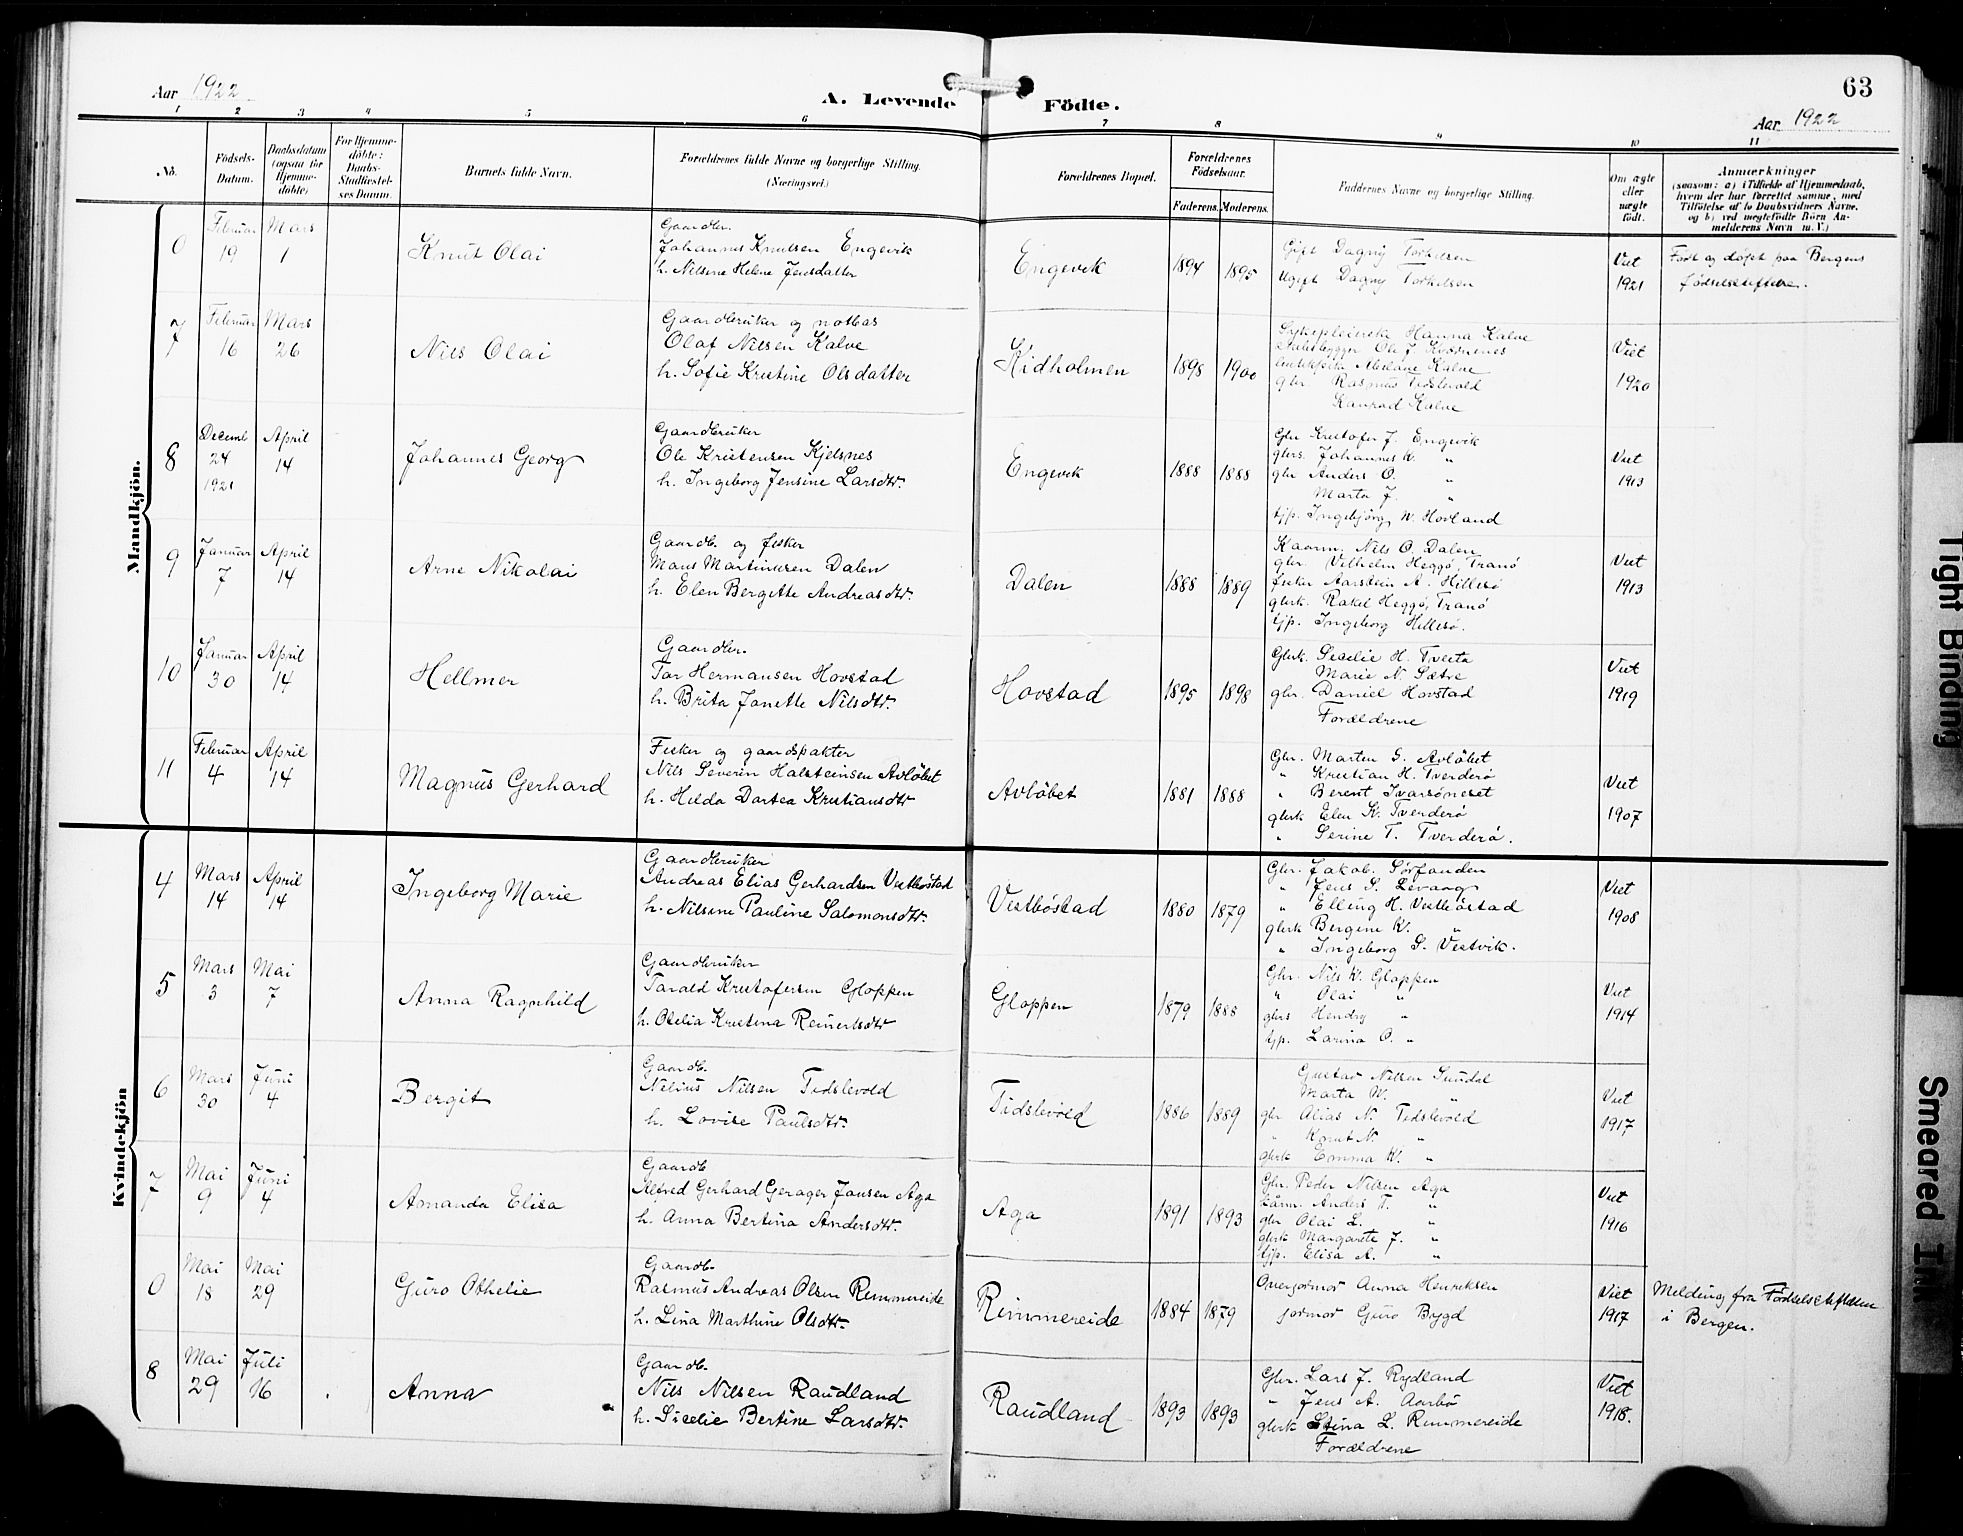 63
Aar 1922
A. Levende Födte.
Aar 1922
1 2 3 4 5 6 7 8 9 10 11
No.
Födsels-
Datum.
Daabsdatum
(ogsaa for
Hjemme-
döbte)
For Hjemme-
döbte:
Daabs-
Stadfæstel-
ses Datum.
Barnets fulde Navn.
Forældrenes fulde Navne og borgerlige Stilling.
(Næringsvei.)
Forældrenes Bopæl.
Forældrenes
Födselsaar.
Faderens. Moderens.
Faddernes Navne og borgerlige Stilling.
Om ægte
eller
uægte
födt.
Anmærkninger
(saasom: a) i Tilfælde af Hjemmedaab,
hvem der har forrettet samme, med
Tilföielse af to Daabsvidners Navne,
og b) ved uægtefödte Börn An-
melderens Navn m. V.)
Mandkjön.
0
Februar
19
Mars
1
Knut Olai
Gaardbr.
Johannes Knutsen Engevik
h. Nilsine Helene Jensdatter
Engevik
1894
1895
Gift Dagny Torkelsen
Ugift Dagny Torkelsen
Viet
1921
Født og døpt paa Bergens
fødselsstiftelse.
7
Februar
16
Mars
26
Nils Olai
Gaardbruker og notbas
Olaf Nilsen Kalve
h. Sofie Kristine Olsdatter
Kidholmen
1898
1900
Sykepleierske Hanna Kalve
Ole J.
Kalve
gbr. Rasmus Tidslevold
Konrad Kalve
Viet
1920
8
Decemb
24
1921
April
14
Johannes Georg
Gaardbruker
Ole Kristensen Kjelsnes
h. Ingeborg Jensine Larsdtr.
Engevik
1888
1888
Gbr Kristofer J. Engevik
gbrs. Johannes K. "
gbr Anders O. "
Marta J. "
tjp. Ingebjörg N. Hovland
Viet
1913
9
Januar
7
April
14
Arne Nikolai
Gaardb. og fisker
Mons Martinusen Dalen
h. Elen Bergitte Andreasdtr.
Dalen
1888
1889
Kaarm. Nils O. Dalen
gbr. Vilhelm Heggö, Tranö
fisker Aarstein A. Hillesö
gbrk. Rakel Heggö, Tranö
tjp. Ingeborg Hillesö.
Viet
1913
10
Januar
30
April
14
Hellmer
Gaardbr.
Tor Hermansen Hovstad
h. Brita Janette Nilsdtr.
Hovstad
1895
1898
Gbrk. Secelie H. Tveita
Marie N. Sætre
gbr. Daniel Hovstad
Forældrene
Viet
1919
11
Februar
4
April
14
Magnus Gerhard
Fisker og gaardspakter
Nils Severin Halsteinsen Avlöbet
h. Hilda Dortea Kristiansdtr
Avlöbet
1881
1888
Gbr. Marten G. Avlöbet
" Kristian H. Tverderö
" Berent Ivarsöneset
gbrk Elen K. Tverderö
" Serine T. Tverderö.
Viet
1907
Kvindekjön
4
Mars
14
April
14
Ingeborg Marie
Gaardbruker
Andreas Elias Gerhardsen Vestböstad
h. Nilsine Pauline Salomonsdtr.
Vestböstad
1880
1879
Gbr. Jakob Sörfonden
" Jens S. Levaag
" Elling H. Vestböstad
gbrk Bergine K. "
" Ingeborg S. Vestvik.
Viet
1908
5
Mars
3
Mai
7
Anna Ragnhild
Gaardbruker
Torald Kristofersen Gloppen
h. Otelia Kristina Reinertsdtr
Gloppen
1879
1888
Gbr. Nils K. Gloppen
" Olai "
gbrs Hendry "
tjp. Larina O. "
Viet
1914
6
Mars
30
Juni
4
Bergit
Gaardb.
Nilius Nilsen Tidslevold
h. Lovise Paulsdtr.
Tidslevold
1886
1889
Gustav Nilsen Sundal
Marta W. "
gbr Alias N. Tidslevold
" Knut N. "
gbrk Emma K. "
Viet
1917
7
Mai
9
Juni
4
Amanda Elisa
Gaardb
Alfred Gerhard Gerager Jansen Aga
h. Anna Bertina Andersdtr.
Aga
1891
1893
Gbr. Peder Nilsen Aga
kårm. Anders T. "
gbr Olai L. "
gbrk Margarete J. "
tjp. Elisa A. "
Viet
1916
0
Mai
18
Mai
29
Guro Othelie
Gaardb.
Rasmus Andreas Olsen Rimmereide
h. Lina Marthine Olsdtr.
Rimmereide
1884
1879
Overjormor Anna Henriksen
jormor Guro Bygd
Viet
1917
Melding fra Fødselsstiftelsen
i Bergen.
8
Mai
29
Juli
16
Anna
Gaardb.
Nils Nilsen Raudland
h. Sicelie Bertine Larsdtr.
Raudland
1893
1893
Gbr. Lars J. Rydland
" Jens A. Aarbö
gbrk Stina L. Rimmereide
Forældrene
Viet
1918.
Tight Binding
Smeared Ink